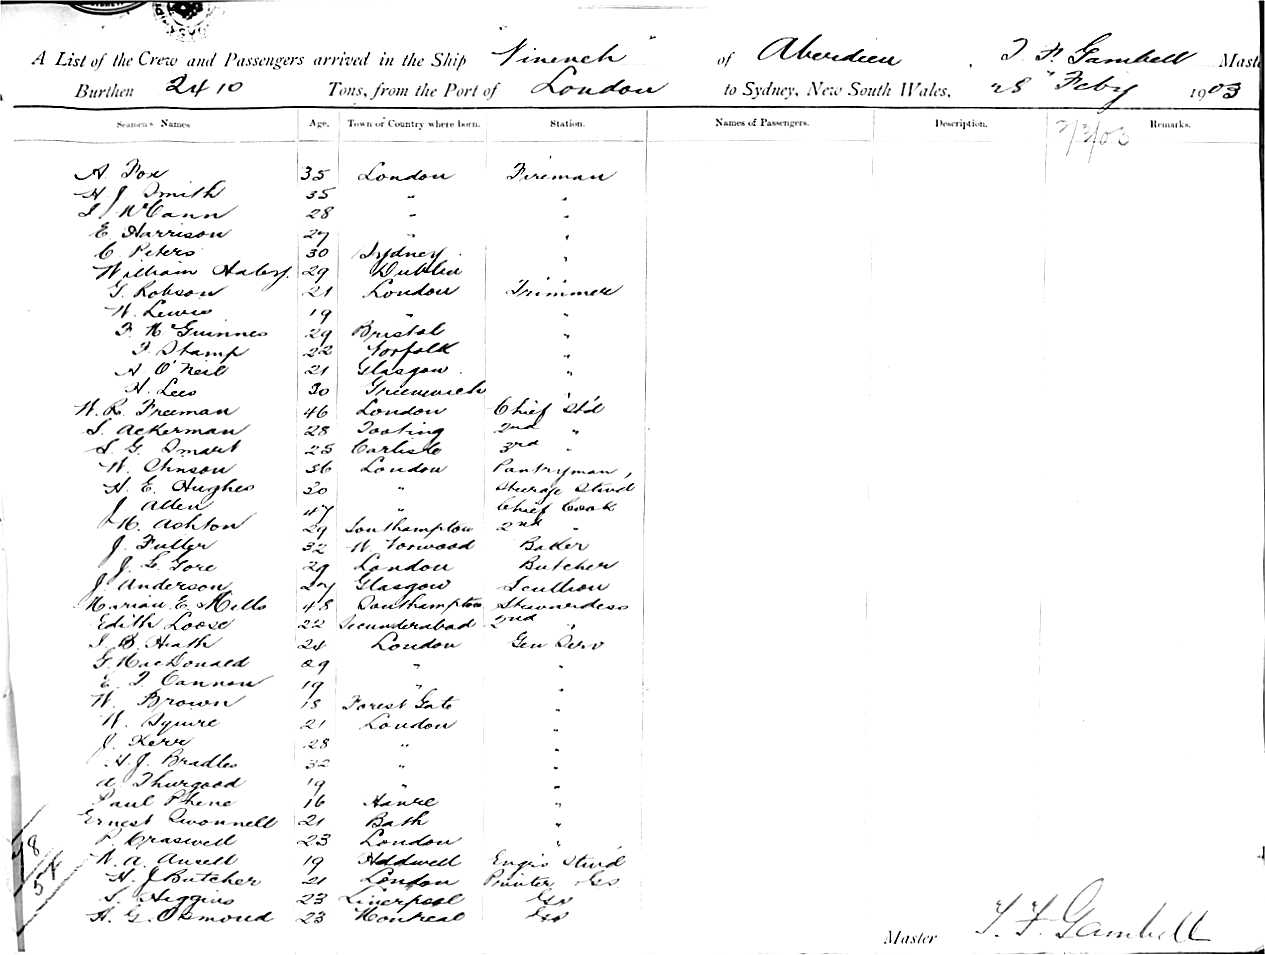 A List of the Crew and Passengers arrived in the Ship "Nineveh" of Aberdeen, T. F. Gambell Maste
Burthen 2410 Tons, from the Port of London to Sydney, New South Wales, 28" Feby 1903
Seamen's Names Age. Town or Country where born. Station. Names of Passengers. Description. Remarks.
3/3/03
A. Fox 35 London Fireman
H J Smith 35 " "
McCann 28 " "
E Harrison 27 " "
C Peters 30 Sydney "
William 29 Dublin "
G. Robson 21 London Trimmer
W. Lewis 19 " "
F. McGuinnes 29 Bristol "
F. Stamp 22 Norfolk "
A O'Neil 21 Glasgow "
H. Lees 30 Greenwich
W. R. Freeman 46 London Chief Std
S. Ackerman 28 Tooting 2nd "
S. G. Smart 25 Carlisle 3rd "
W. 36 London Pantryman,
H. E. Hughes 30 " Steerage Stwd
J Allen 47 " Chief Cook
M. Ashton 29 Southampton 2nd "
J. Fuller 32 W Norwood Baker
J. G. Gore 29 London Butcher
J Anderson 27 Glasgow Scullion
Marian E. Mills 48 Southampton Stewardess
Edith Loose 22 Secunderabad 2nd "
S. B. Heath 24 London Gen Serv
G. MacDonald 29 " "
E. T. Cannon 19 " "
W. Brown 18 Forest Gate "
W. Squire 21 London "
J. Kerr 28 " "
H. J. Bradles 32 " "
A Thurgood 19 " "
Paul Phene 16 Havre "
Ernest 21 Bath "
P. Craswell 23 London "
W. A. 19 Engrs Stwd
H. J Butcher 21 London Printer
S. Higgins 23 Liverpool
H. G. Osmond 23 Montreal
78
54
Master T. F. Gambell